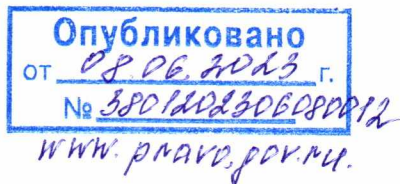 Опубликовано
от 08.06.2023 г.
№ 3801202306080012
www.pravo.gov.ru.